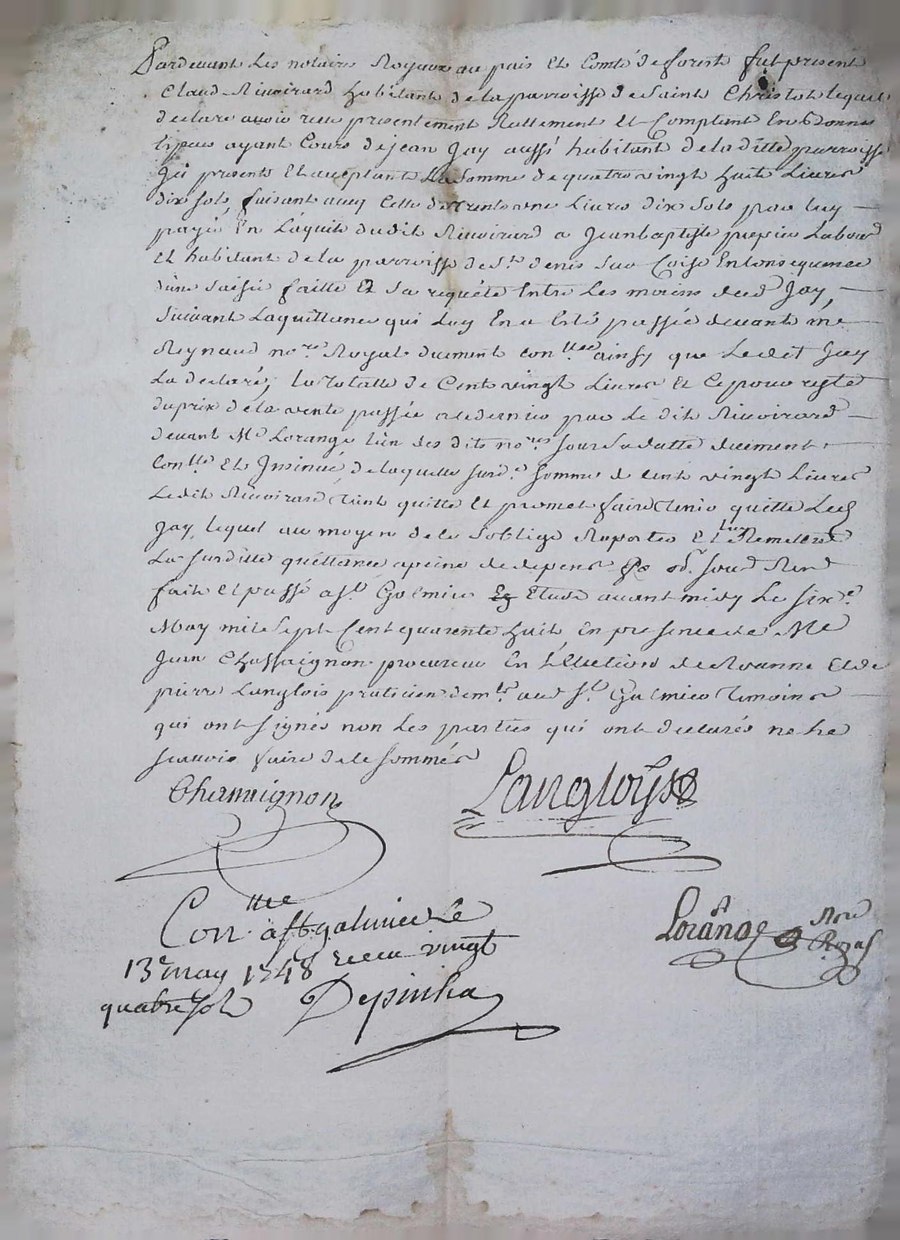 Pardevant Les notaires Royaux au païs Et Comté de forest fut présent
Claud Rivoirard habitant de la parroisse de Saint Christot Lequel
declare avoir reçu presentement Réellement Et Comptant En bonnes
Espèces ayant Cours de jean Jay aussé habitant de la ditte parroisse
Jci présent Et acceptant La Somme de quatre vingt huit Livres
dix sols, faisant avec Celle de trente une Livres dix Sols par luy
payée En L'aquit dudit Rivoirard a Jean baptiste Labour
Et habitant de la parroisse de St denis Sur Coise En Consequence
d'une saésie faitte Et Sa requête Entre Les mains dud Jay,
Suivant La quittance qui Luy En a Eté passée devant me
Reynaud nore Royal duement conllée ainsy que Ledit Jay
La declaré; la totalle de Cent vingt Livres Et Ce pour reste
du prix de la vente passée a ce dernier par Le dit Rivoirard
devant Me Lorange L'un des dits nores Sous Sa datte duëment
Conllé Et Jnsinué, de laquelle surde Somme de Cent vingt Livres
Ledit Rivoirard tient quitte Et promet faire tenir quitte Led
Jay, lequel au moyen de ce S'oblige Raporter Et luy Remettre
La Surditte quittance a peine de depens
fait Et passé a St Galmier Etude avant midy Le Sixe
May mil Sept Cent quarente huit, En presence de Me
Jean Chassaignon procureur En L'Election de Roanne Et de
pierre Langlois praticien demts aud St Galmier temoins
qui ont signés non Les parties qui ont declarés ne le
Scavoir faire de ce Sommés
Chassaignon
Langloys
Lorange nore Royal
Conlle a St galmier Le
13e may 1748 receu vingt
quatre sols Depinha